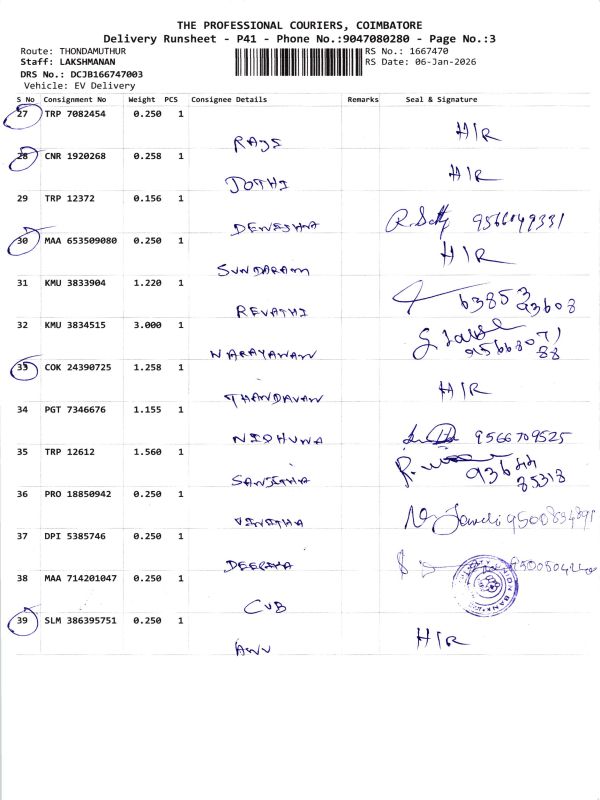 THE PROFESSIONAL COURIERS, COIMBATORE
Delivery Runsheet - P41 - Phone No.:9047080280 - Page No.:3
Route: THONDAMUTHUR RS No.: 1667470
Staff: LAKSHMANAN RS Date: 06-Jan-2026
DRS No.: DCJB166747003
Vehicle: EV Delivery
S No Consignment No Weight PCS Consignee Details Remarks Seal & Signature
27 TRP 7082454 0.250 1 H/R
RAJS
28 CNR 1920268 0.258 1 H/R
JOTHI
29 TRP 12372 0.156 1 9566049331
30 MAA 653509080 0.250 1 H/R
SUNDARAM
31 KMU 3833904 1.220 1 63853 93608
REVATHI
32 KMU 3834515 3.000 1
NARAYANAN
33 COK 24390725 1.258 1 H/R
THANDAVAN
34 PGT 7346676 1.155 1 9566709525
NIDHUNA
35 TRP 12612 1.560 1 93644 85318
SANJITHA
36 PRO 18850942 0.250 1
VINITHA
37 DPI 5385746 0.250 1
DEEPIKA
38 MAA 714201047 0.250 1
CUB
39 SLM 386395751 0.250 1 H/R
ANU